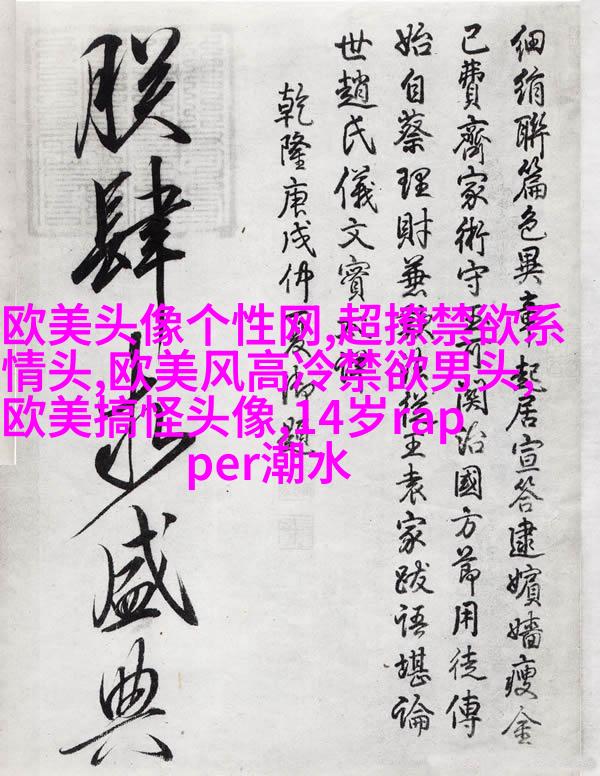 欧美头像个性网,超撩禁欲系
情头,欧美风高冷禁欲男头,
欧美搞怪头像,14岁rap
per潮水
細絹聯篇色異章起居宣答逮嬪嬙瘦金
已費齊家術守可関治國方節用徒傳
始自蔡理財兼從王袁家跋語堪論
世趙氏儀文實
乾隆庚戌仲夏御題
朕肆盛典